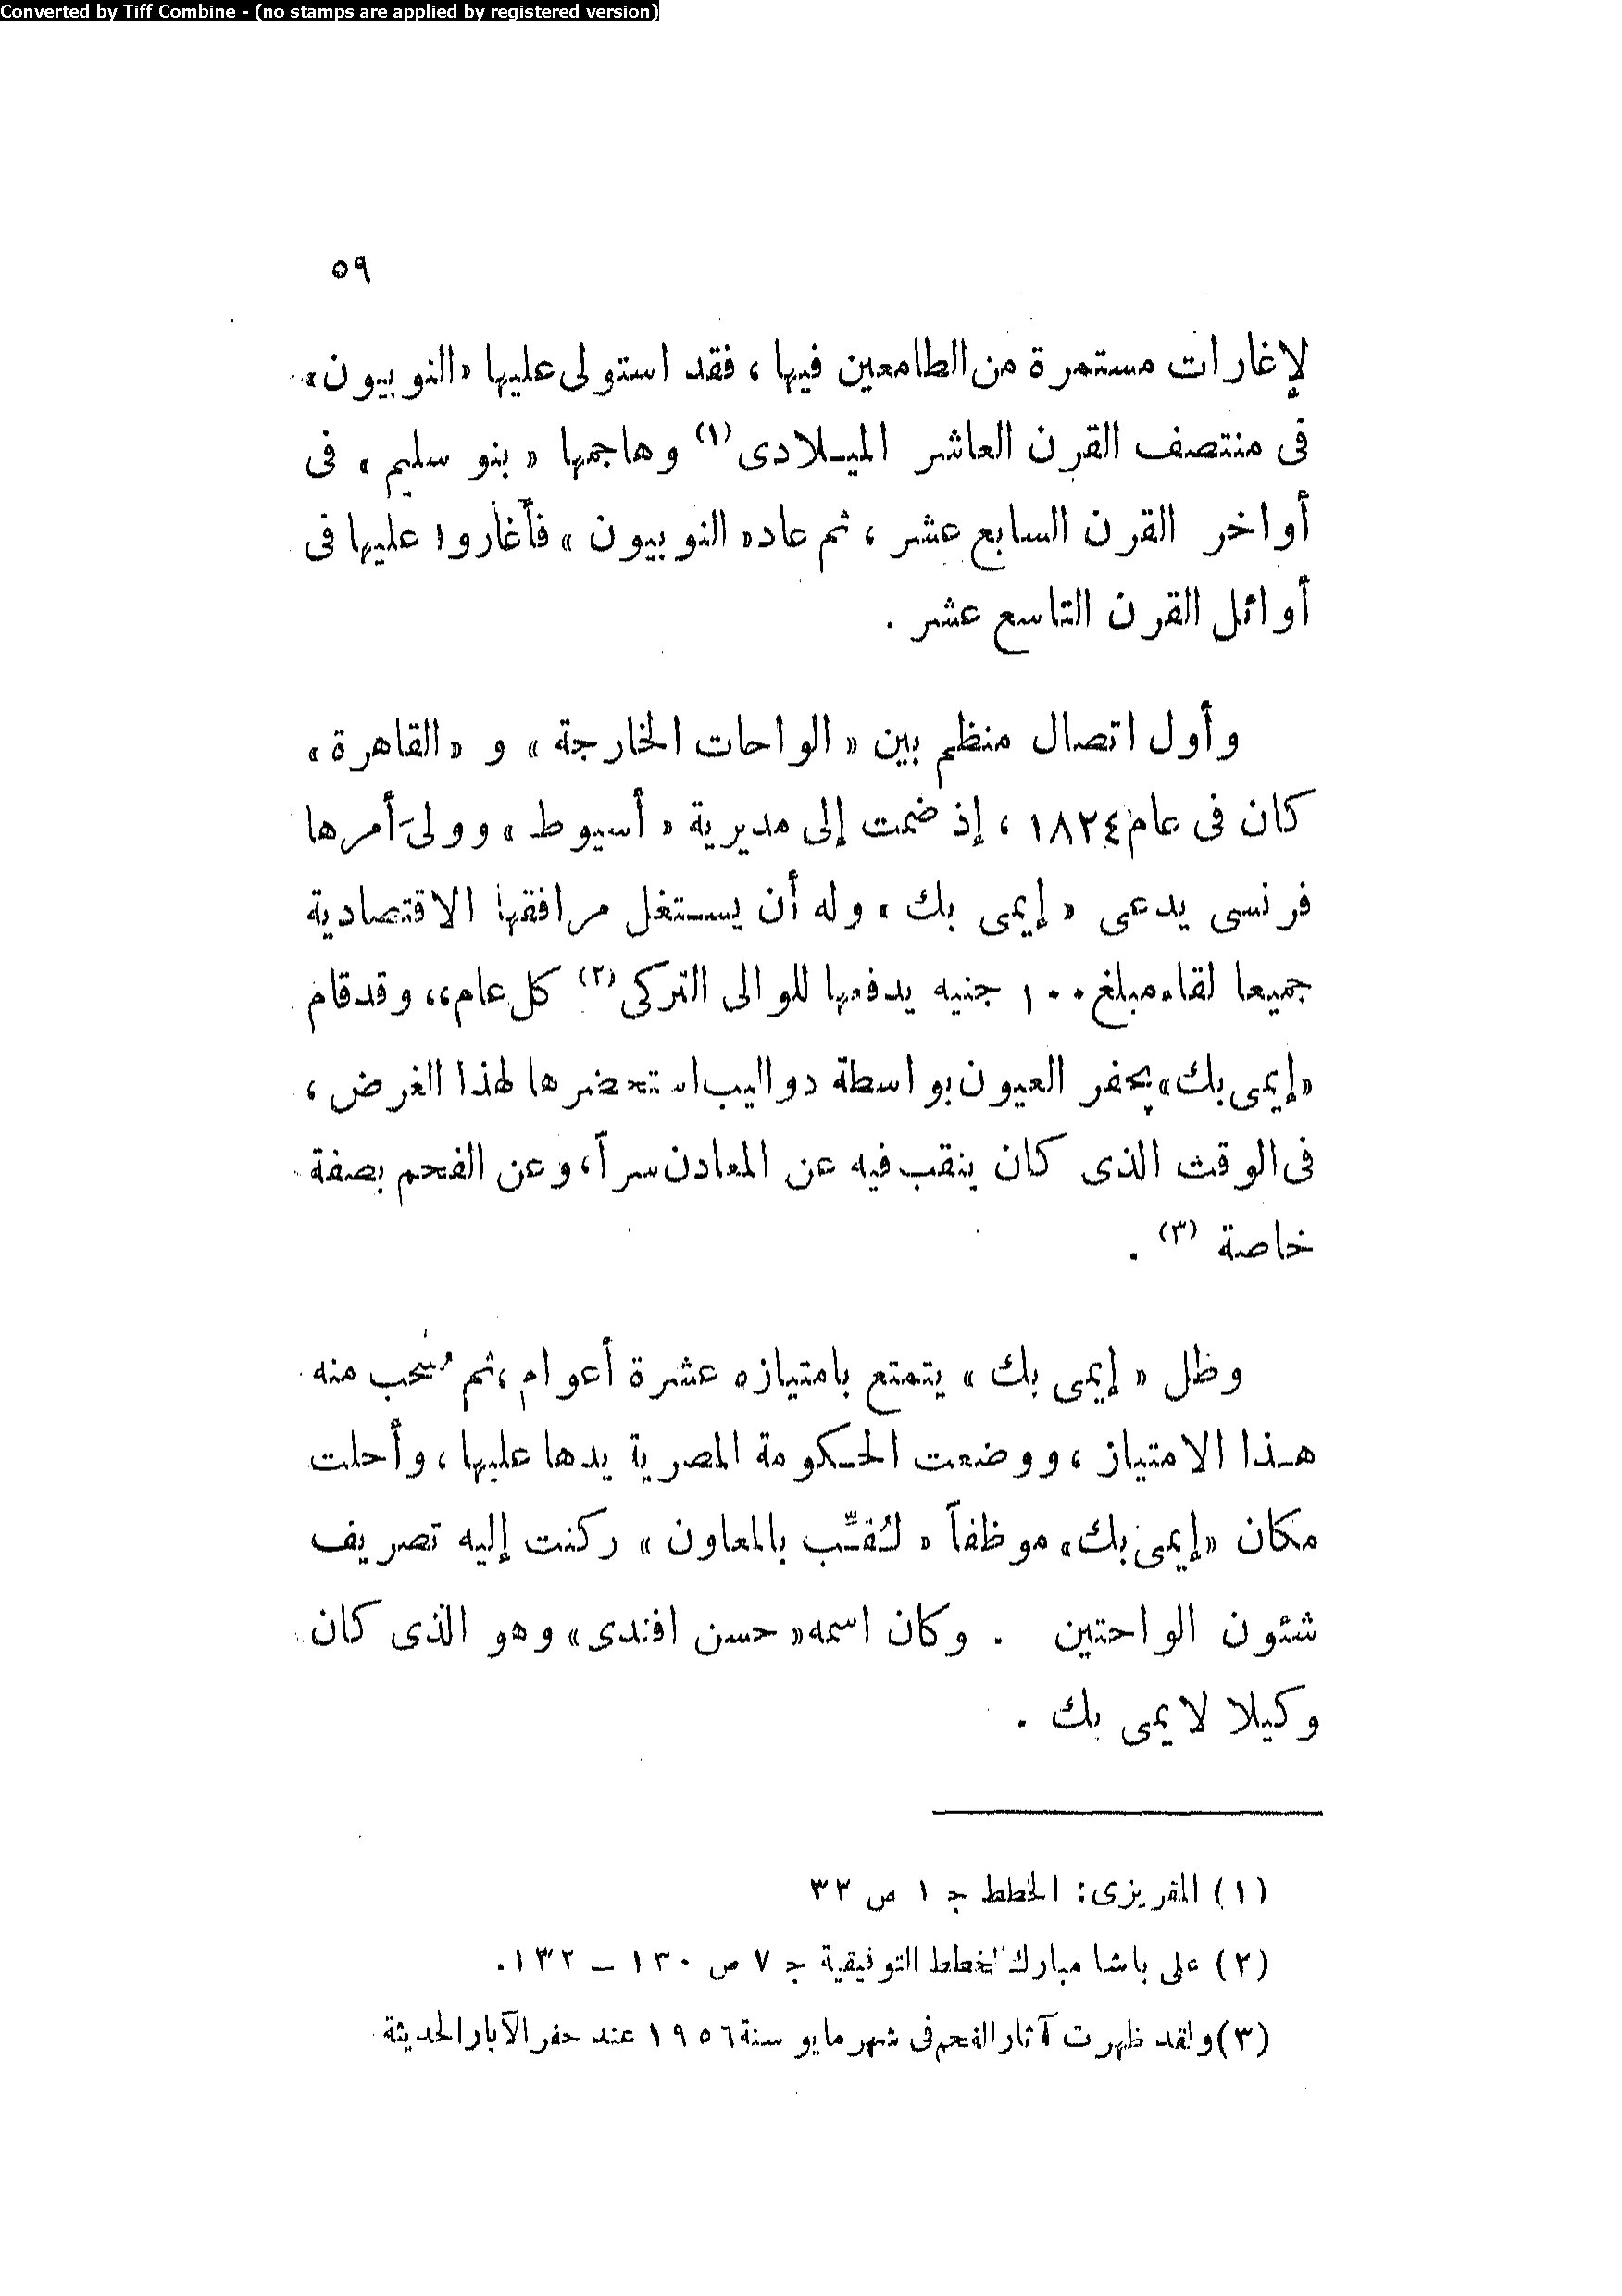 Converted by Tiff Combine - (no stamps are applied by registered version)
٥٩
لإغارات مستمرة من الطامعين فيها ، فقد استولى عليها «النوبيون»
فى منتصف القرن العاشر الميلادى (١) وهاجمها « بنو سليم » فى
أواخر القرن السابع عشر ، ثم عاد « النوبيون » فأغاروا عليها فى
أوائل القرن التاسع عشر .
وأول اتصال منظم بين « الواحات الخارجة » و « القاهرة »
كان فى عام ١٨٢٤ ، إذ ضمت إلى مديرية « أسيوط » وولى أمرها
فرنسى يدعى « إيمى بك » وله أن يستغل مرافقها الاقتصادية
جميعا لقاء مبلغ ١٠٠ جنيه يدفعها للوالى التركى (٢) كل عام ،، وقد قام
« إيمى بك » بحفر العيون بواسطة دواليب استحضرها لهذا الغرض ،
فى الوقت الذى كان ينقب فيه عن المعادن سراً ، وعن الفحم بصفة
خاصة (٣) .
وظل « إيمى بك » يتمتع بامتيازه عشرة أعوام ، ثم سُحب منه
هذا الامتياز ، ووضعت الحكومة المصرية يدها عليها ، وأحلت
مكان « إيمى بك » موظفاً « لُقِّب بالمعاون » ركنت إليه تصريف
شئون الواحتين . وكان اسمه « حسن افندى » وهو الذى كان
وكيلا لايمى بك .
(١) المقريزى : الخطط ج ١ ص ٣٣
(٢) على باشا مبارك الخطط التوفيقية ج ٧ ص ١٣٠ – ١٣٢ .
(٣) ولقد ظهرت آثار الفحم فى شهر مايو سنة ١٩٥٦ عند حفر الآبار الحديثة